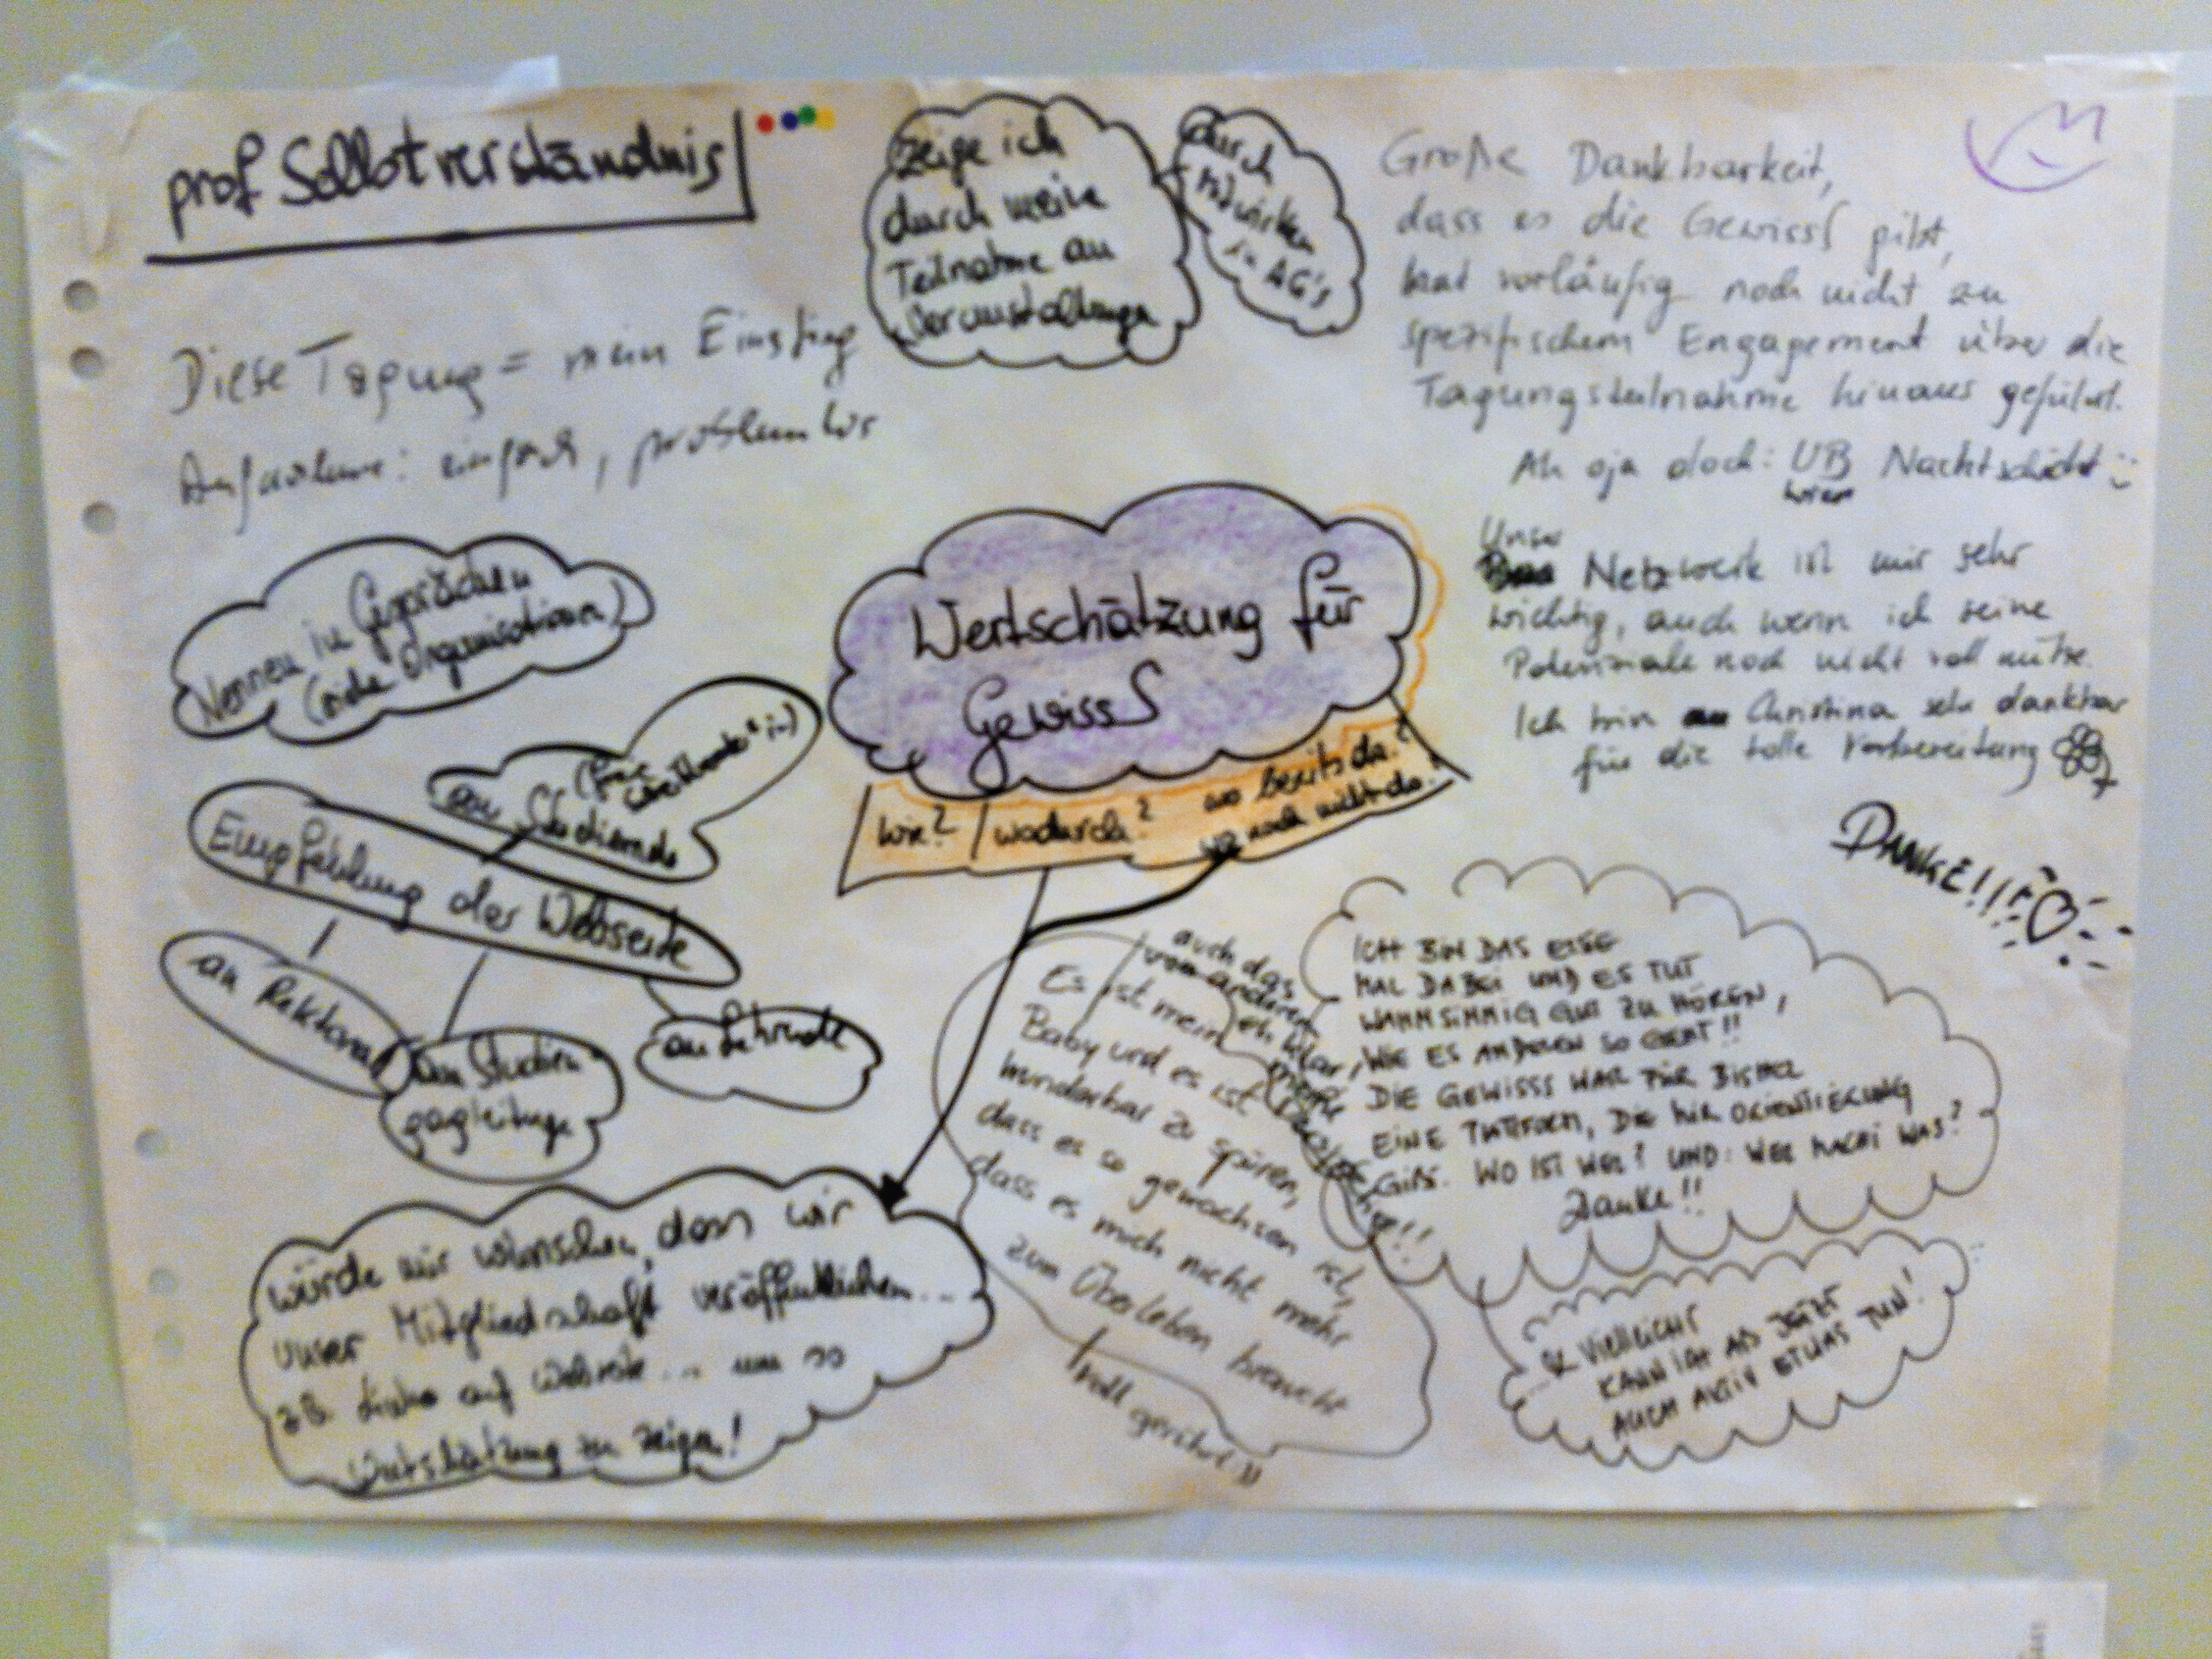 prof. Selbstverständnis
zeige ich
durch meine
Teilnahme an
Veranstaltungen
durch
Mitwirken
in AG's
Große Dankbarkeit,
dass es die GewissS gibt,
hat vorläufig noch nicht zu
spezifischem Engagement über die
Tagungsteilnahme hinaus geführt.
Ah oja doch: UB Nachtschicht :)
Wien
Diese Tagung = mein Einstieg
Aufnahme: einfach, problemlos
Unser
Netzwerk ist mir sehr
wichtig, auch wenn ich seine
Potenziale noch nicht voll nutze.
Ich bin Christina sehr dankbar
für die tolle Vorbereitung
DANKE!!!
Nennen in Gesprächen
Organisationen)
Wertschätzung für
GewissS
wie? / wodurch? wo bereits da?
wo noch nicht da?
an Studierende
Empfehlung der Webseite
an Rektorat
an Studien-
gangleitungen
an Lehrende
würde mir wünschen, dass wir
unser Mitgliedschaft veröffentlichen...
z.B. auf Webseite... um so
Wertschätzung zu zeigen!
auch das
von anderen
eh klar,
meine
Es ist mein
Baby und es ist
wunderbar zu spüren,
dass es so gewachsen ist,
dass es mich nicht mehr
zum Überleben braucht
voll gerührt :))
ICH BIN DAS ERSTE
MAL DABEI UND ES TUT
WAHNSINNIG GUT ZU HÖREN,
WIE ES ANDEREN SO GEHT!!
DIE GEWISSS WAR FÜR BISHER
EINE PLATTFORM, DIE MIR ORIENTIERUNG
GIBT. WO IST WER? UND: WER MACHT WAS?
Danke!!
& VIELLEICHT
KANN ICH AB JETZT
AUCH AKTIV ETWAS TUN!